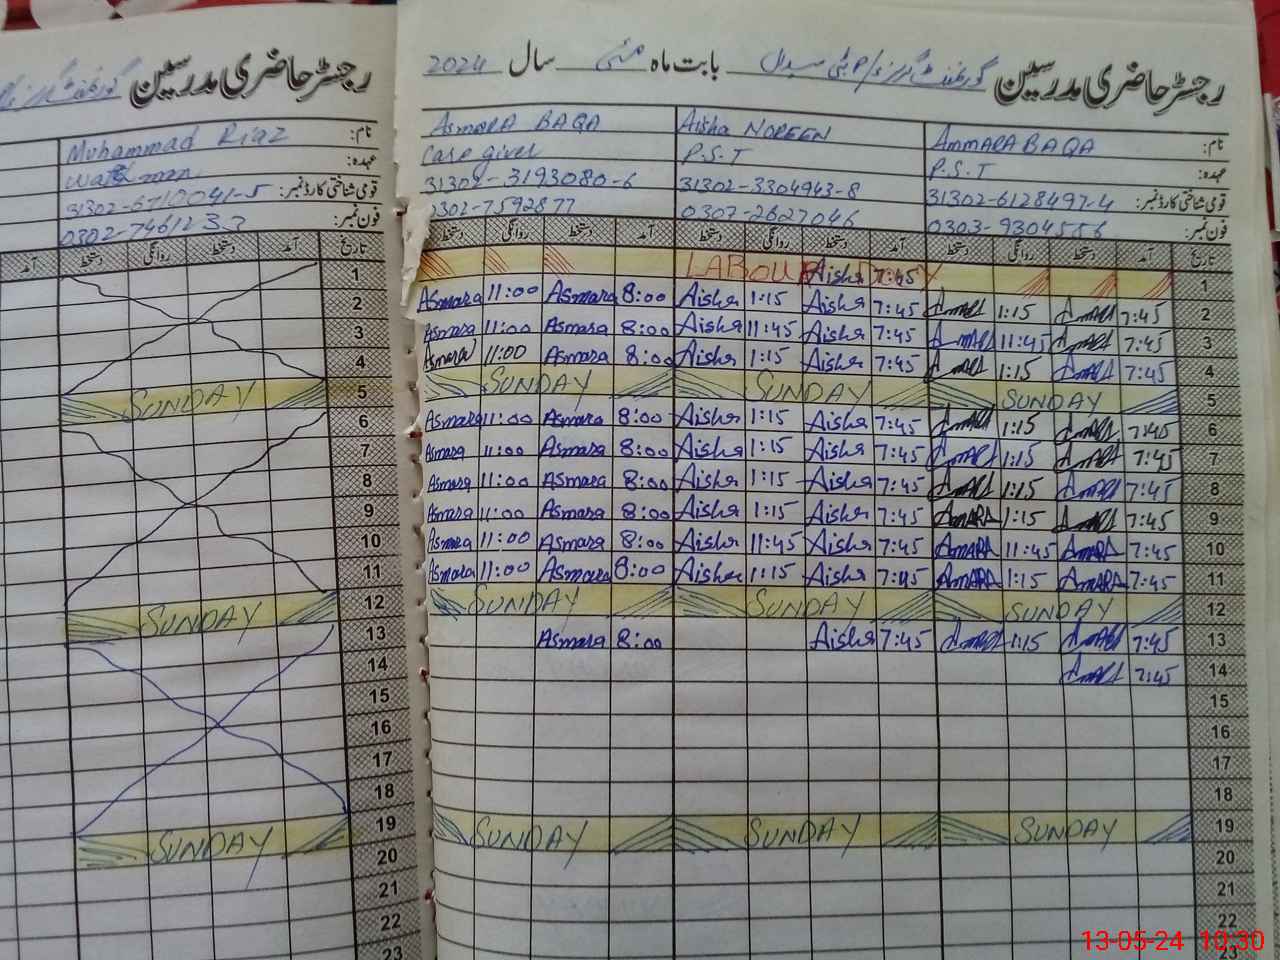 رجسٹر حاضری مدرسین
نام: Muhammad Riaz
عہدہ: Watch man
قومی شناختی کارڈ نمبر: 31302-6710041-5
فون نمبر: 0302-7461233
تاریخ آمد دستخط روانگی دستخط آمد
1
2
3
4
5 SUNDAY
6
7
8
9
10
11
12 SUNDAY
13
14
15
16
17
18
19 SUNDAY
20
21
22
23
رجسٹر حاضری مدرسین گورنمنٹ گرلز بابت ماہ مئی سال 2024
نام: AmMARA BAQA Aisha NOREEN AsmARA BAQA
عہدہ: P.S.T P.S.T Care giver
قومی شناختی کارڈ نمبر: 31302-6128497-4 31302-3304943-8 31302-3193080-6
فون نمبر: 0303-9304556 0307-2627046 0302-7592877
تاریخ آمد دستخط روانگی دستخط آمد دستخط روانگی دستخط آمد دستخط روانگی دستخط
LABOUR DAY Aisha 7:45 1
Asmara 11:00 Asmara 8:00 Aisha 1:15 Aisha 7:45 Amara 1:15 Amara 7:45 2
Asmara 11:00 Asmara 8:00 Aisha 11:45 Aisha 7:45 Amara 11:45 Amara 7:45 3
Asmara 11:00 Asmara 8:00 Aisha 1:15 Aisha 7:45 Amara 1:15 Amara 7:45 4
SUNDAY SUNDAY SUNDAY 5
Asmara 11:00 Asmara 8:00 Aisha 1:15 Aisha 7:45 Amara 1:15 Amara 7:45 6
Asmara 11:00 Asmara 8:00 Aisha 1:15 Aisha 7:45 Amara 1:15 Amara 7:45 7
Asmara 11:00 Asmara 8:00 Aisha 1:15 Aisha 7:45 Amara 1:15 Amara 7:45 8
Asmara 11:00 Asmara 8:00 Aisha 1:15 Aisha 7:45 AmARA 1:15 Amara 7:45 9
Asmara 11:00 Asmara 8:00 Aisha 11:45 Aisha 7:45 AmARA 11:45 AmARA 7:45 10
Asmara 11:00 Asmara 8:00 Aisha 1:15 Aisha 7:45 AmARA 1:15 AmARA 7:45 11
SUNDAY SUNDAY SUNDAY 12
Asmara 8:00 Aisha 7:45 Amara 1:15 Amara 7:45 13
Amara 7:45 14
15
16
17
18
SUNDAY SUNDAY SUNDAY 19
20
21
22
23
13-05-24 10:30